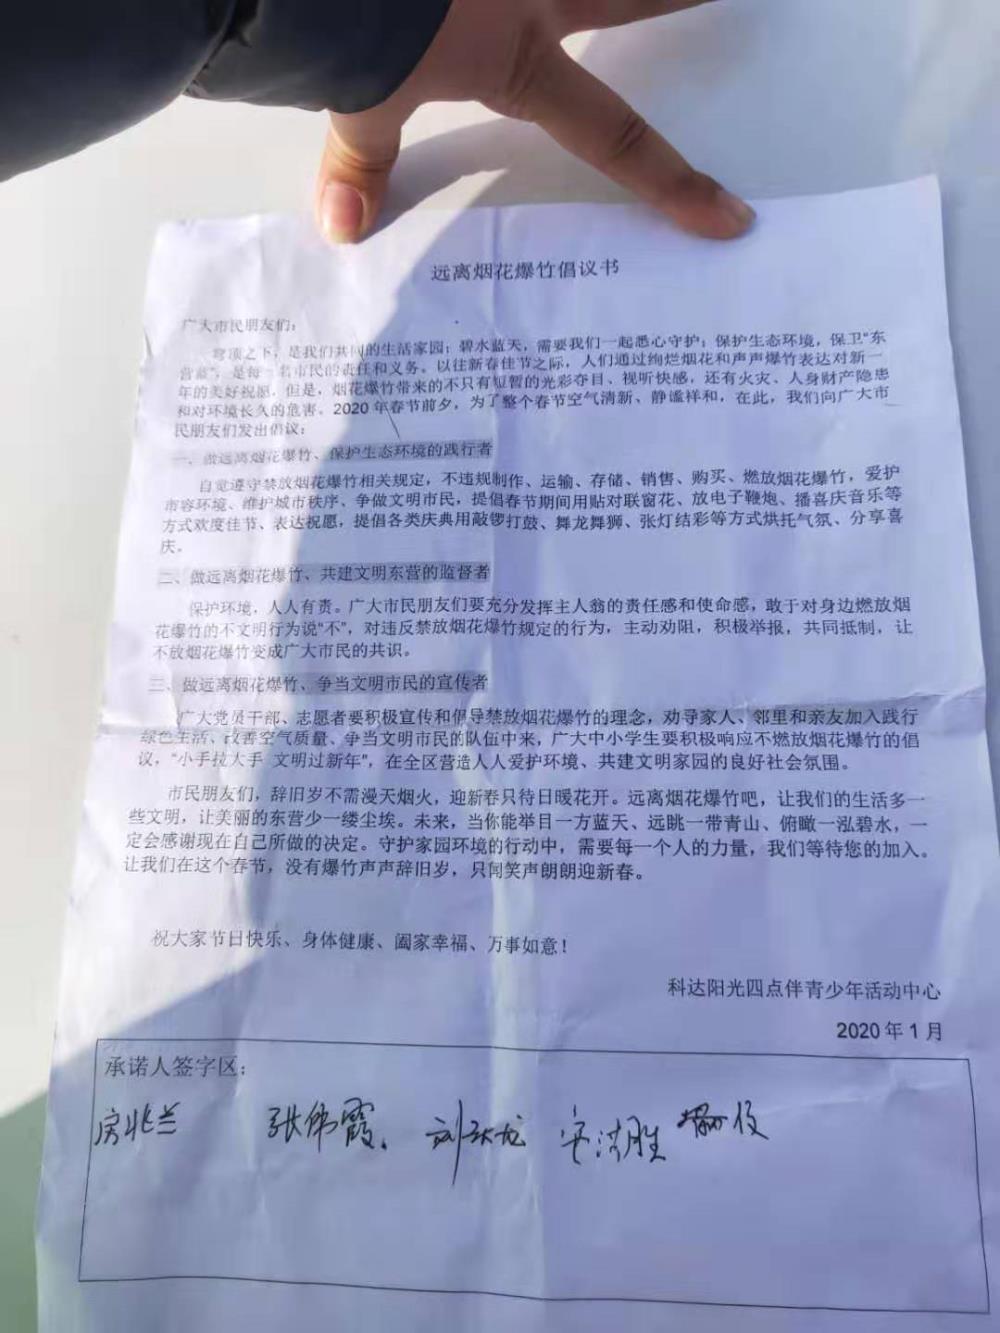 远离烟花爆竹倡议书
广大市民朋友们：
穹顶之下，是我们共同的生活家园；碧水蓝天，需要我们一起悉心守护；保护生态环境，保卫“东
营蓝”，是每一名市民的责任和义务。以往新春佳节之际，人们通过绚烂烟花和声声爆竹表达对新一
年的美好祝愿，但是，烟花爆竹带来的不只有短暂的光彩夺目、视听快感，还有火灾、人身财产隐患
和对环境长久的危害。2020年春节前夕，为了整个春节空气清新、静谧祥和，在此，我们向广大市
民朋友们发出倡议：
一、做远离烟花爆竹、保护生态环境的践行者
自觉遵守禁放烟花爆竹相关规定，不违规制作、运输、存储、销售、购买、燃放烟花爆竹，爱护
市容环境、维护城市秩序、争做文明市民，提倡春节期间用贴对联窗花、放电子鞭炮、播喜庆音乐等
方式欢度佳节、表达祝愿，提倡各类庆典用敲锣打鼓、舞龙舞狮、张灯结彩等方式烘托气氛、分享喜
庆。
二、做远离烟花爆竹、共建文明东营的监督者
保护环境，人人有责。广大市民朋友们要充分发挥主人翁的责任感和使命感，敢于对身边燃放烟
花爆竹的不文明行为说“不”，对违反禁放烟花爆竹规定的行为，主动劝阻，积极举报，共同抵制，让
不放烟花爆竹变成广大市民的共识。
三、做远离烟花爆竹、争当文明市民的宣传者
广大党员干部、志愿者要积极宣传和倡导禁放烟花爆竹的理念，劝导家人、邻里和亲友加入践行
绿色生活、改善空气质量、争当文明市民的队伍中来，广大中小学生要积极响应不燃放烟花爆竹的倡
议，“小手拉大手 文明过新年”，在全区营造人人爱护环境、共建文明家园的良好社会氛围。
市民朋友们，辞旧岁不需漫天烟火，迎新春只待日暖花开。远离烟花爆竹吧，让我们的生活多一
些文明，让美丽的东营少一缕尘埃。未来，当你能举目一方蓝天、远眺一带青山、俯瞰一泓碧水，一
定会感谢现在自己所做的决定。守护家园环境的行动中，需要每一个人的力量，我们等待您的加入。
让我们在这个春节，没有爆竹声声辞旧岁，只闻笑声朗朗迎新春。
祝大家节日快乐、身体健康、阖家幸福、万事如意！
科达阳光四点伴青少年活动中心
2020年1月
承诺人签字区：
房兆兰 张伟霞